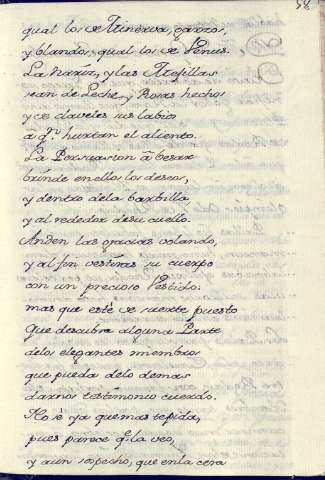 58.
qual los de Minerva, garzos,
y blandos, qual los de Venus.
La Naríz, y las Mexillas
sean de Leche, y Rosas hechos
y de claveles sus labios
â qn. hurtan el aliento.
La Persuasion â besar
brinde en ellos los deseos,
y dentro dela barbilla,
y al rededor de su cuello.
Anden las gracias volando,
y al fin vestiràs su cuerpo
con un precioso Vestido:
mas que esté de suerte puesto
Que descubra alguna Parte
delos elegantes miembros
que pueda delo demas
darnos testimonio cuerdo.
No sè ya que mas te pida,
pues parece q. la veo,
y aun sospecho, que en la cera